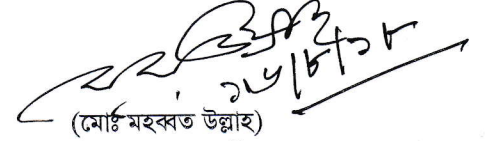 ১৬/৮/১৮
(মোঃ মহব্বত উল্লাহ)